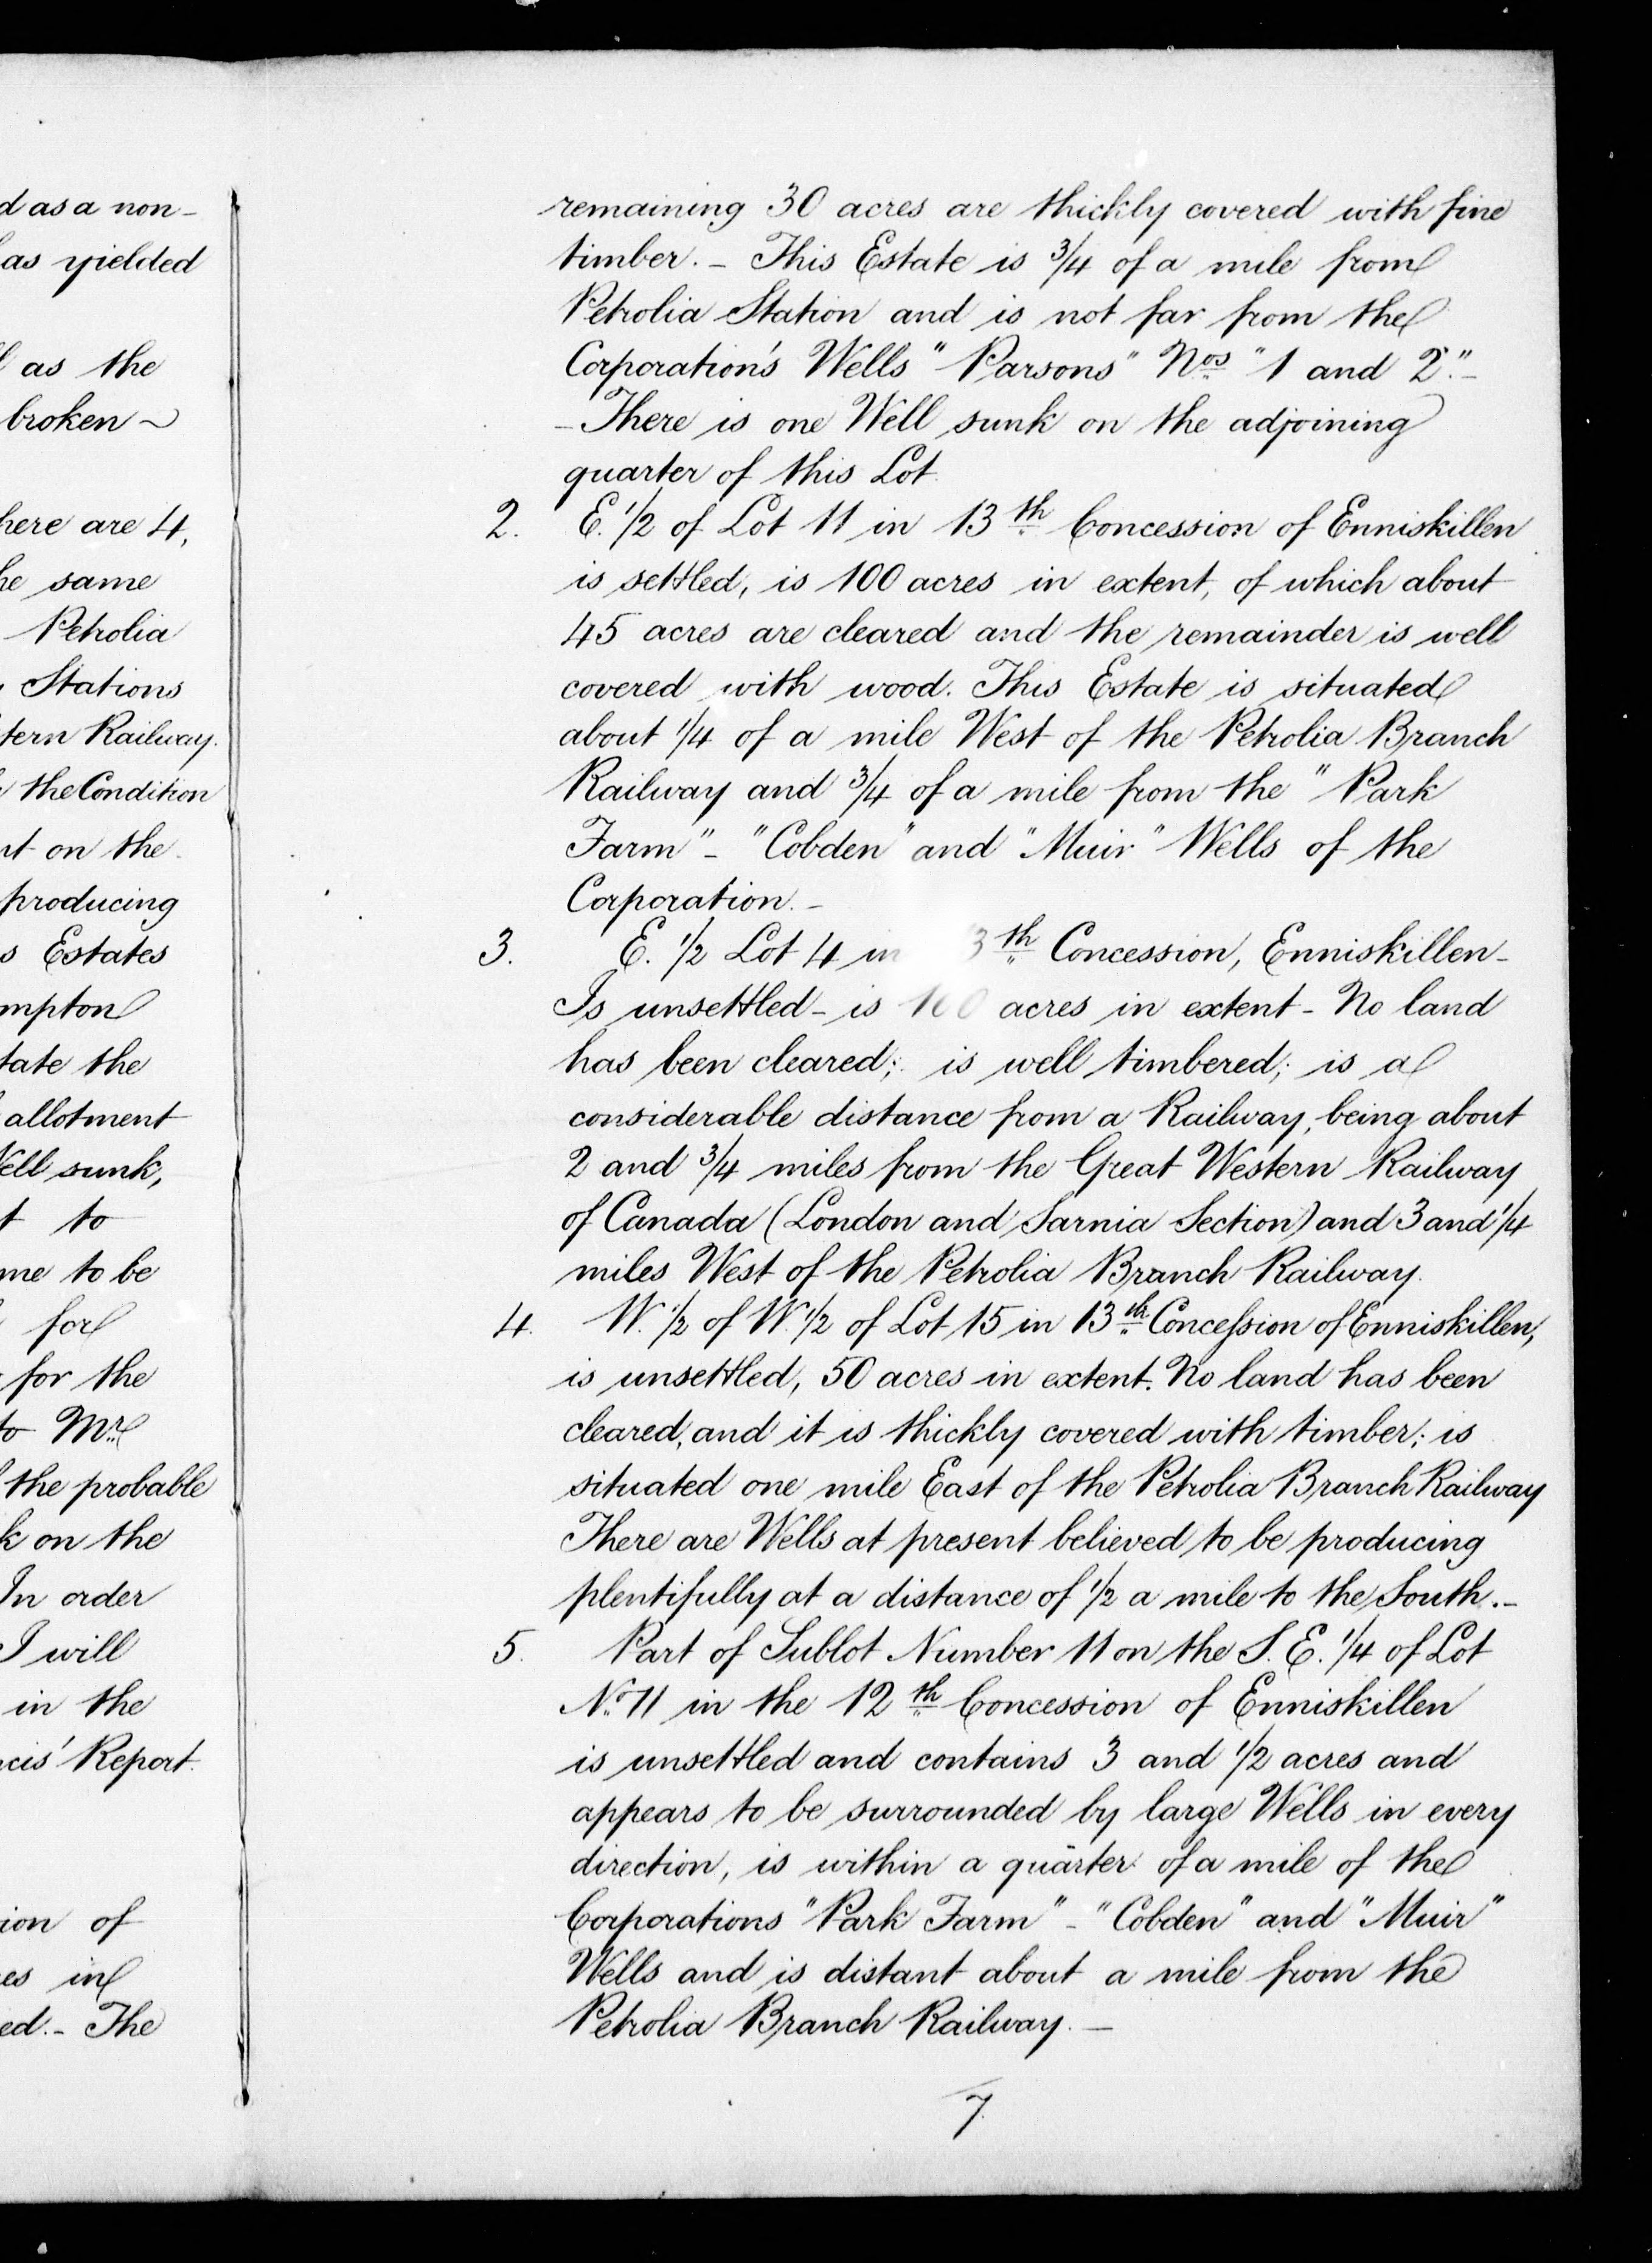 d as a non-
as yielded
as the
broken ~
here are 4,
he same
Petrolia
Stations
tern Railway.
the Condition
nt on the
producing
s Estates
mpton
tate the
allotment
ell sunk,
t to
me to be
for
for the
to Mr.
the probable
k on the
In order
I will
in the
cis' Report.
ion of
es in
ed.- The
remaining 30 acres are thickly covered with fine
timber. - This Estate is 3/4 of a mile from
Petrolia Station and is not far from the
Corporation's Wells "Parsons" Nos "1 and 2".-
- There is one Well sunk on the adjoining
quarter of this Lot.
2. E. 1/2 of Lot 11 in 13th Concession of Enniskillen
is settled, is 100 acres in extent, of which about
45 acres are cleared and the remainder is well
covered with wood. This Estate is situated
about 1/4 of a mile West of the Petrolia Branch
Railway and 3/4 of a mile from the "Park
Farm" - "Cobden" and "Muir" Wells of the
Corporation. -
3. E. 1/2 Lot 4 in 3th Concession, Enniskillen -
Is unsettled - is 100 acres in extent - No land
has been cleared; is well timbered; is a
considerable distance from a Railway, being about
2 and 3/4 miles from the Great Western Railway
of Canada (London and Sarnia Section) and 3 and 1/4
miles West of the Petrolia Branch Railway.
4. W. 1/2 of W. 1/2 of Lot 15 in 13th Concession of Enniskillen,
is unsettled, 50 acres in extent. No land has been
cleared, and it is thickly covered with timber; is
situated one mile East of the Petrolia Branch Railway
There are Wells at present believed to be producing
plentifully at a distance of 1/2 a mile to the South. -
5. Part of Sublot Number 11 on the S. E. 1/4 of Lot
No. 11 in the 12th Concession of Enniskillen
is unsettled and contains 3 and 1/2 acres and
appears to be surrounded by large Wells in every
direction, is within a quarter of a mile of the
Corporations "Park Farm" - "Cobden" and "Muir"
Wells and is distant about a mile from the
Petrolia Branch Railway. -
7.